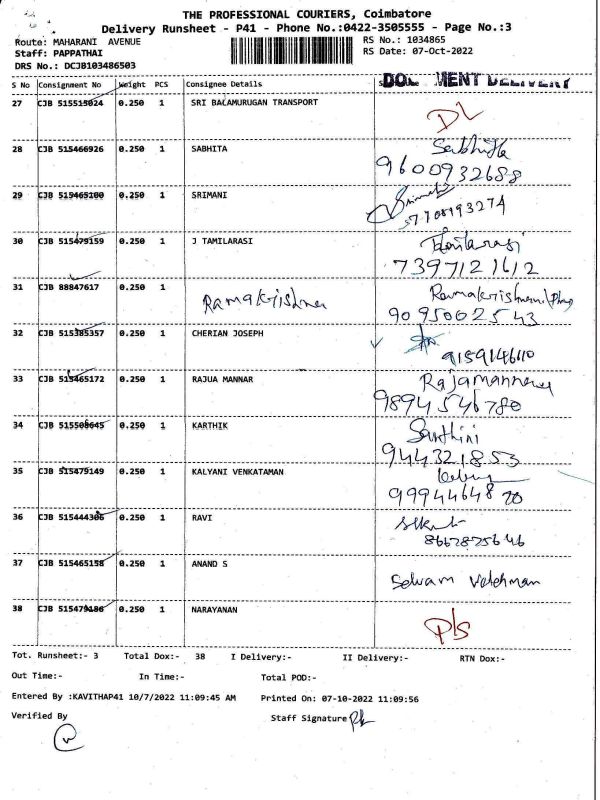 THE PROFESSIONAL COURIERS, Coimbatore
Delivery Runsheet - P41 - Phone No.:0422-3505555 - Page No.:3
Route: MAHARANI AVENUE
RS No.: 1034865
Staff: PAPPATHAI
RS Date: 07-Oct-2022
DRS No.: DCJB103486503
S No Consignment No Weight PCS Consignee Details
DOCUMENT DELIVERY
27 CJB 515515024 0.250 1 SRI BALAMURUGAN TRANSPORT DL
28 CJB 515466926 0.250 1 SABHITA Sabhita
9600932688
29 CJB 515465100 0.250 1 SRIMANI Srimani
7708193274
30 CJB 515479159 0.250 1 J TAMILARASI Tamilarasi
7397121612
31 CJB 88847617 0.250 1 Ramakrishna Ramakrishnan
9095002543
32 CJB 515385357 0.250 1 CHERIAN JOSEPH
9159146110
33 CJB 515465172 0.250 1 RAJUA MANNAR Rajamannar
9894546780
34 CJB 515508645 0.250 1 KARTHIK Santhini
944321853
35 CJB 515479149 0.250 1 KALYANI VENKATAMAN
9994464870
36 CJB 515444306 0.250 1 RAVI
8667875646
37 CJB 515465158 0.250 1 ANAND S Selvam
38 CJB 515479186 0.250 1 NARAYANAN P/s
Tot. Runsheet:- 3 Total Dox:- 38 I Delivery:- II Delivery:- RTN Dox:-
Out Time:- In Time:- Total POD:-
Entered By :KAVITHAP41 10/7/2022 11:09:45 AM Printed On: 07-10-2022 11:09:56
Verified By Staff Signature